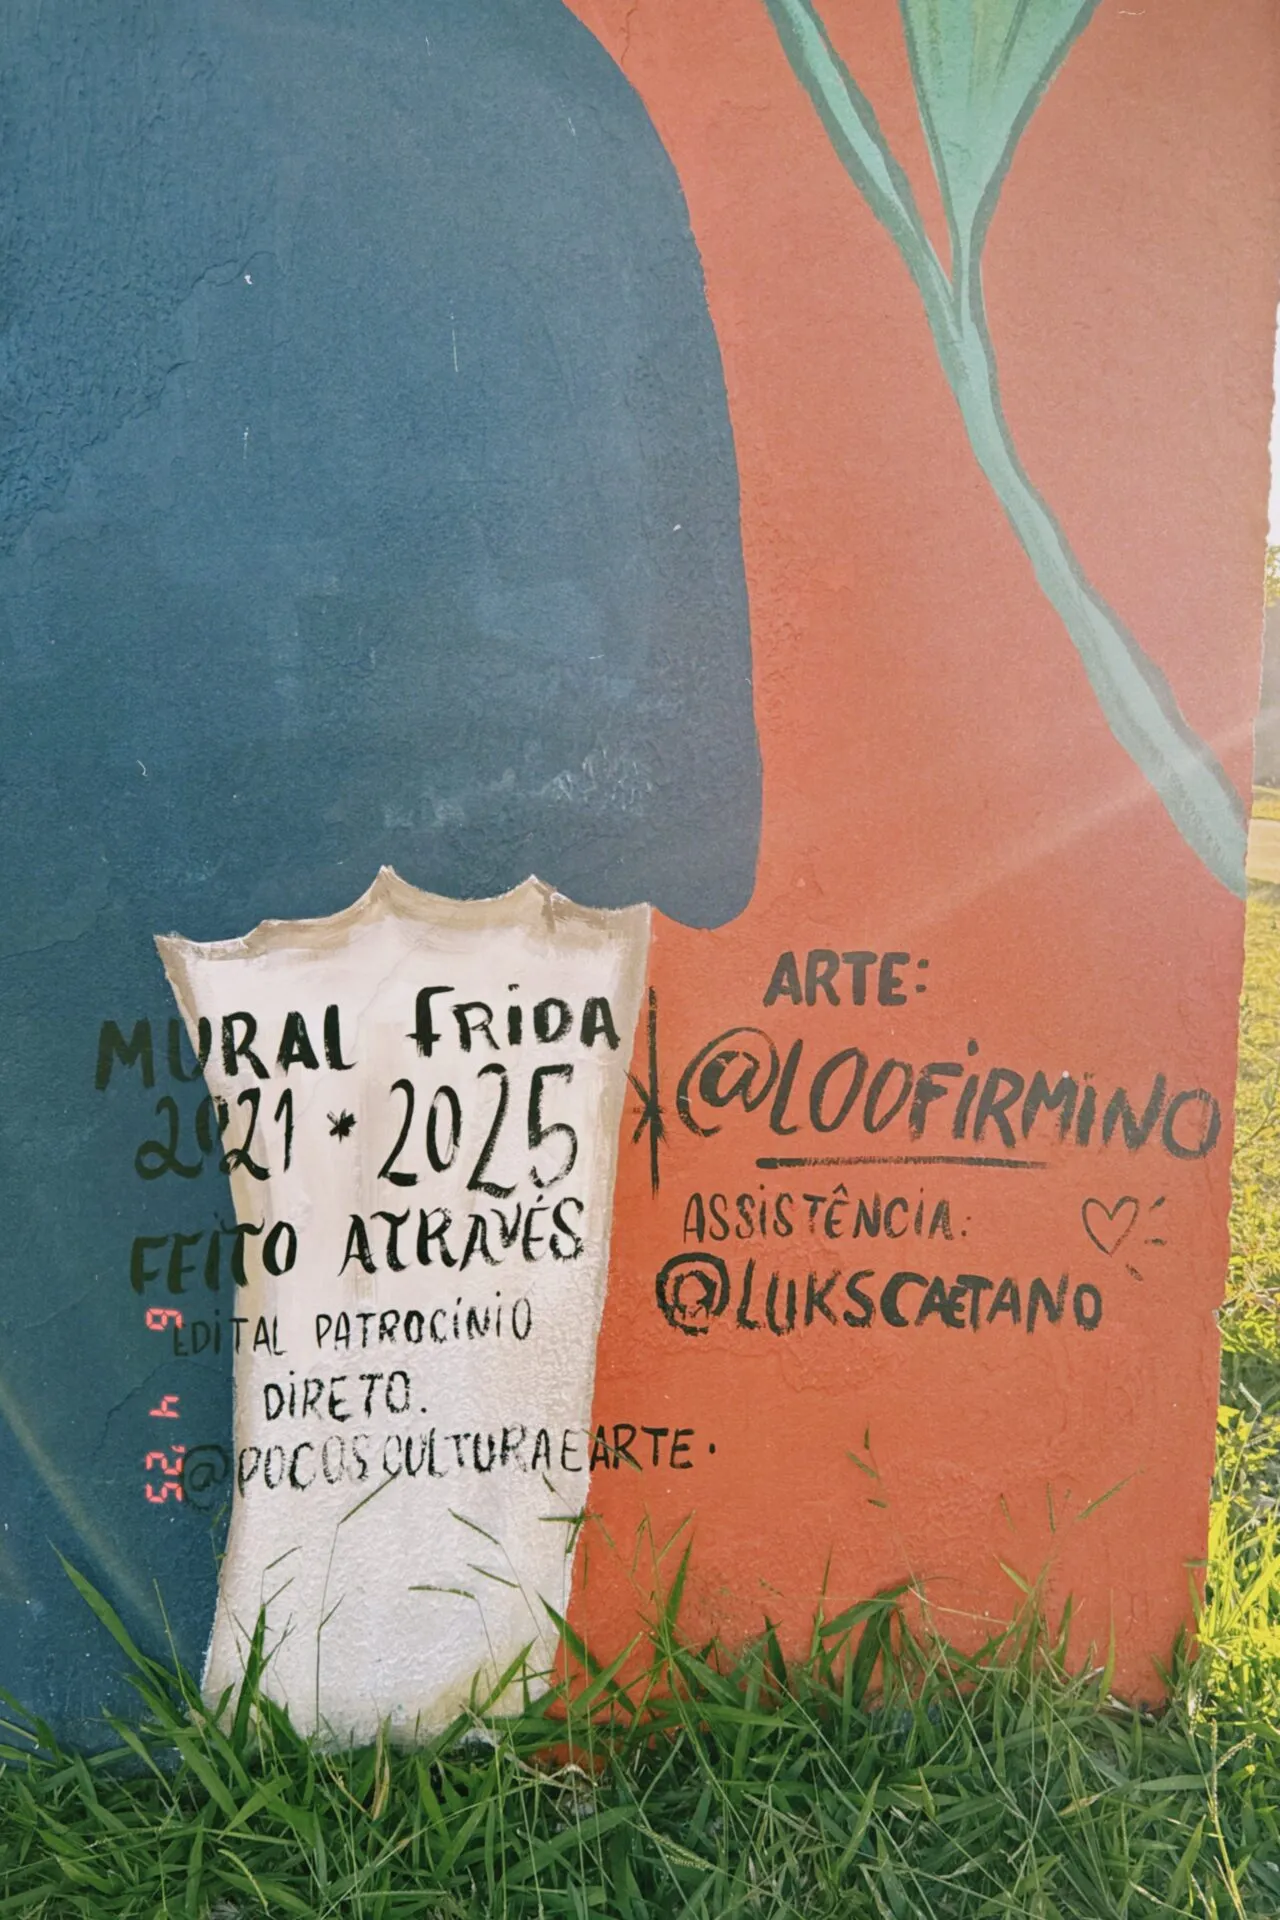 MURAL FRIDA
2021 * 2025
FEITO ATRAVÉS
EDITAL PATROCÍNIO
DIRETO.
@POCOSCULTURAEARTE.
ARTE:
@LOOFIRMINO
ASSISTÊNCIA:
@LUKSCAETANO
6 4 '25